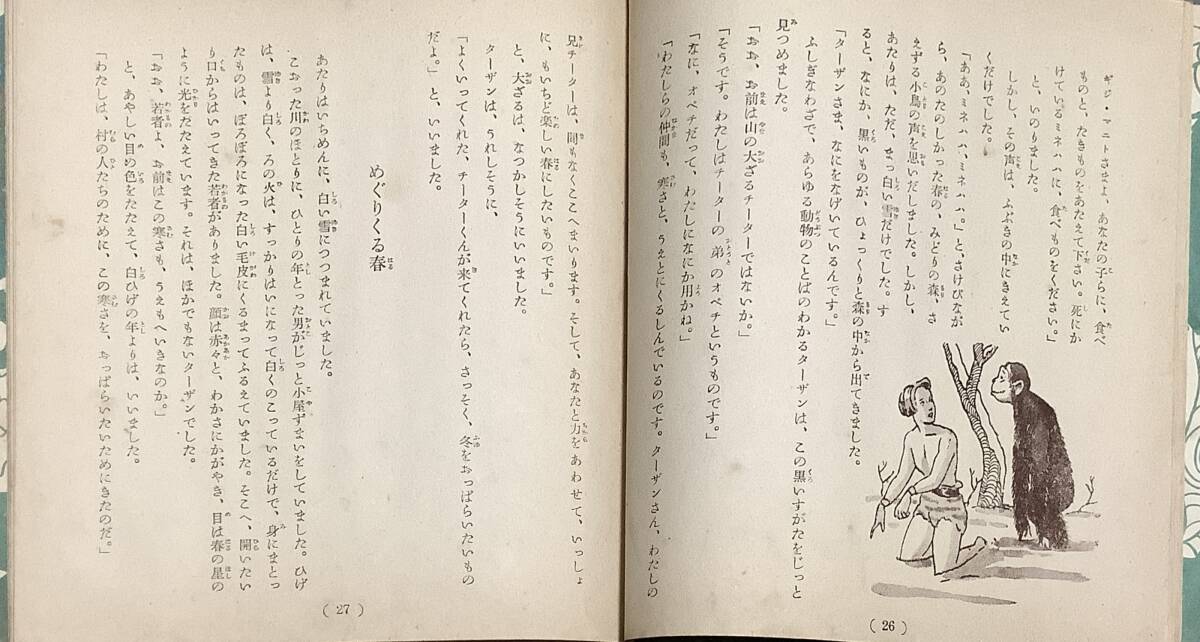 ギジ・マニトさまよ、あなたの子らに、食べ
ものと、たきものをあたえて下さい。死にか
けているミネハハに、食べものをください。」
と、いのりました。
しかし、その声は、ふぶきの中にきえてい
くだけでした。
「ああ、ミネハハ、ミネハハ。」と、さけびなが
ら、あのたのしかった春の、みどりの森、さ
えずる小鳥の声を思いだしました。しかし、
あたりは、ただ、まっ白い雪だけでした。す
ると、なにか、黒いものが、ひょっくりと森の中から出てきました。
「ターザンさま、なにをなげいているんです。」
ふしぎなわざで、あらゆる動物のことばのわかるターザンは、この黒いすがたをじっと
見つめました。
「おお、お前は山の大ざるチーターではないか。」
「そうです。わたしはチーターの弟のオペチというものです。」
「なに、オペチだって、わたしになにか用かね。」
「わたしらの仲間も、寒さと、うえとにくるしんでいるのです。ターザンさん、わたしの
(26)
兄チーターは、間もなくここへまいります。そして、あなたと力をあわせて、いっしょ
に、もいちど楽しい春にしたいものです。」
と、大ざるは、なつかしそうにいいました。
ターザンは、うれしそうに、
「よくいってくれた、チーターくんが来てくれたら、さっそく、冬をおっぱらいたいもの
だよ。」と、いいました。
めぐりくる春
あたりはいちめんに、白い雪につつまれていました。
こおった川のほとりに、ひとりの年とった男がじっと小屋ずまいをしていました。ひげ
は、雪より白く、ろの火は、すっかりはいになって白くのこっているだけで、身にまとっ
たものは、ぼろぼろになった白い毛皮にくるまってふるえていました。そこへ、開いたい
り口からはいってきた若者がありました。顔は赤々と、わかさにかがやき、目は春の星の
ように光をたたえています。それは、ほかでもないターザンでした。
「おお、若者よ、お前はこの寒さも、うえもへいきなのか。」
と、あやしい目の色をたたえて、白ひげの年よりは、いいました。
「わたしは、村の人たちのために、この寒さを、おっぱらいたいためにきたのだ。」
(27)